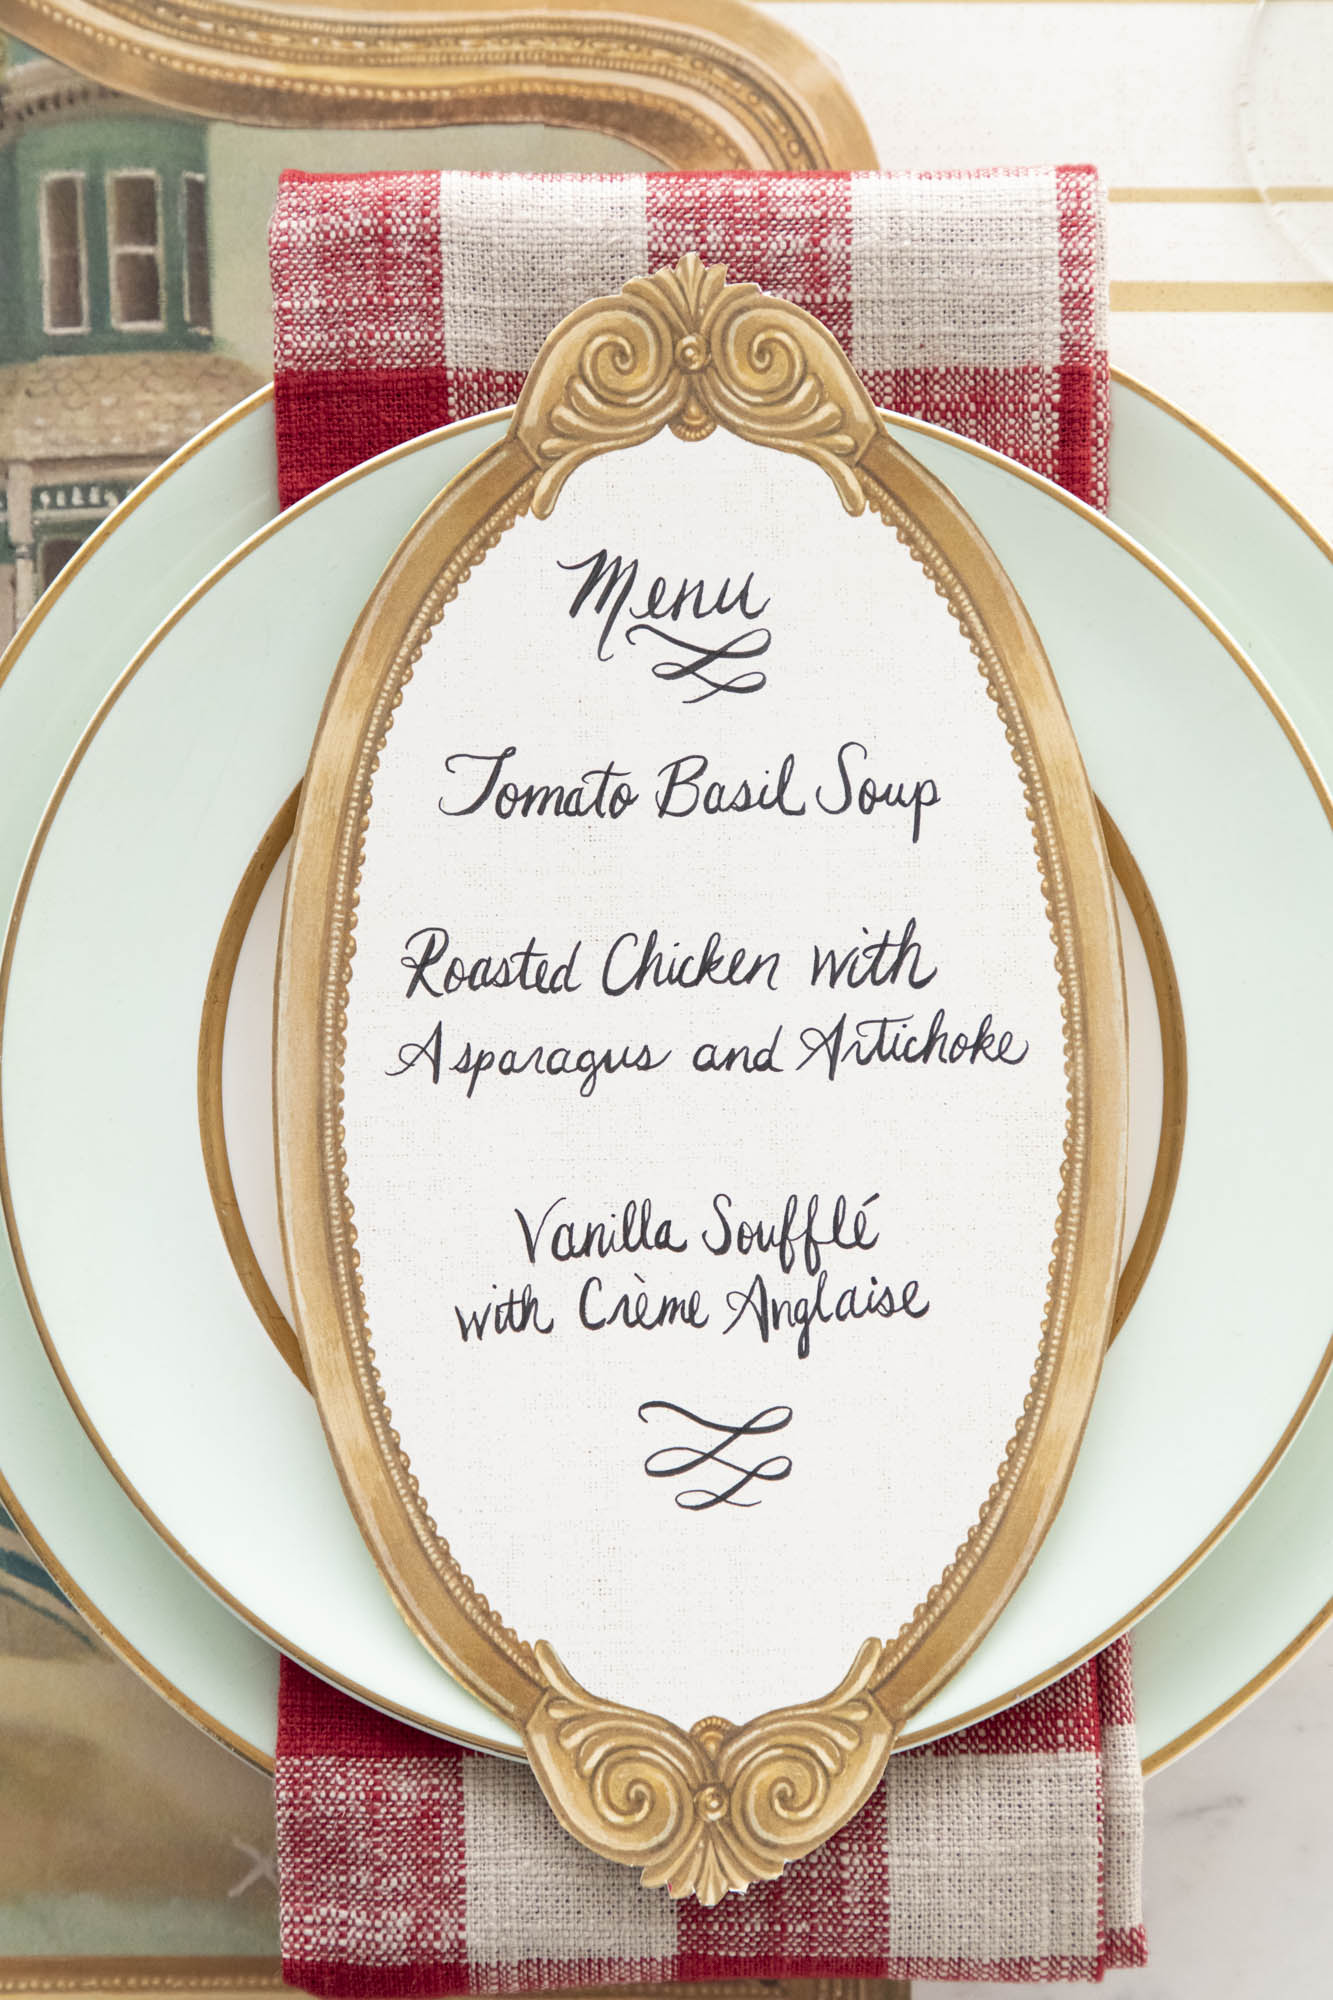 Menu
Tomato Basil Soup
Roasted Chicken with
Asparagus and Artichoke
Vanilla Soufflé
with Crème Anglaise